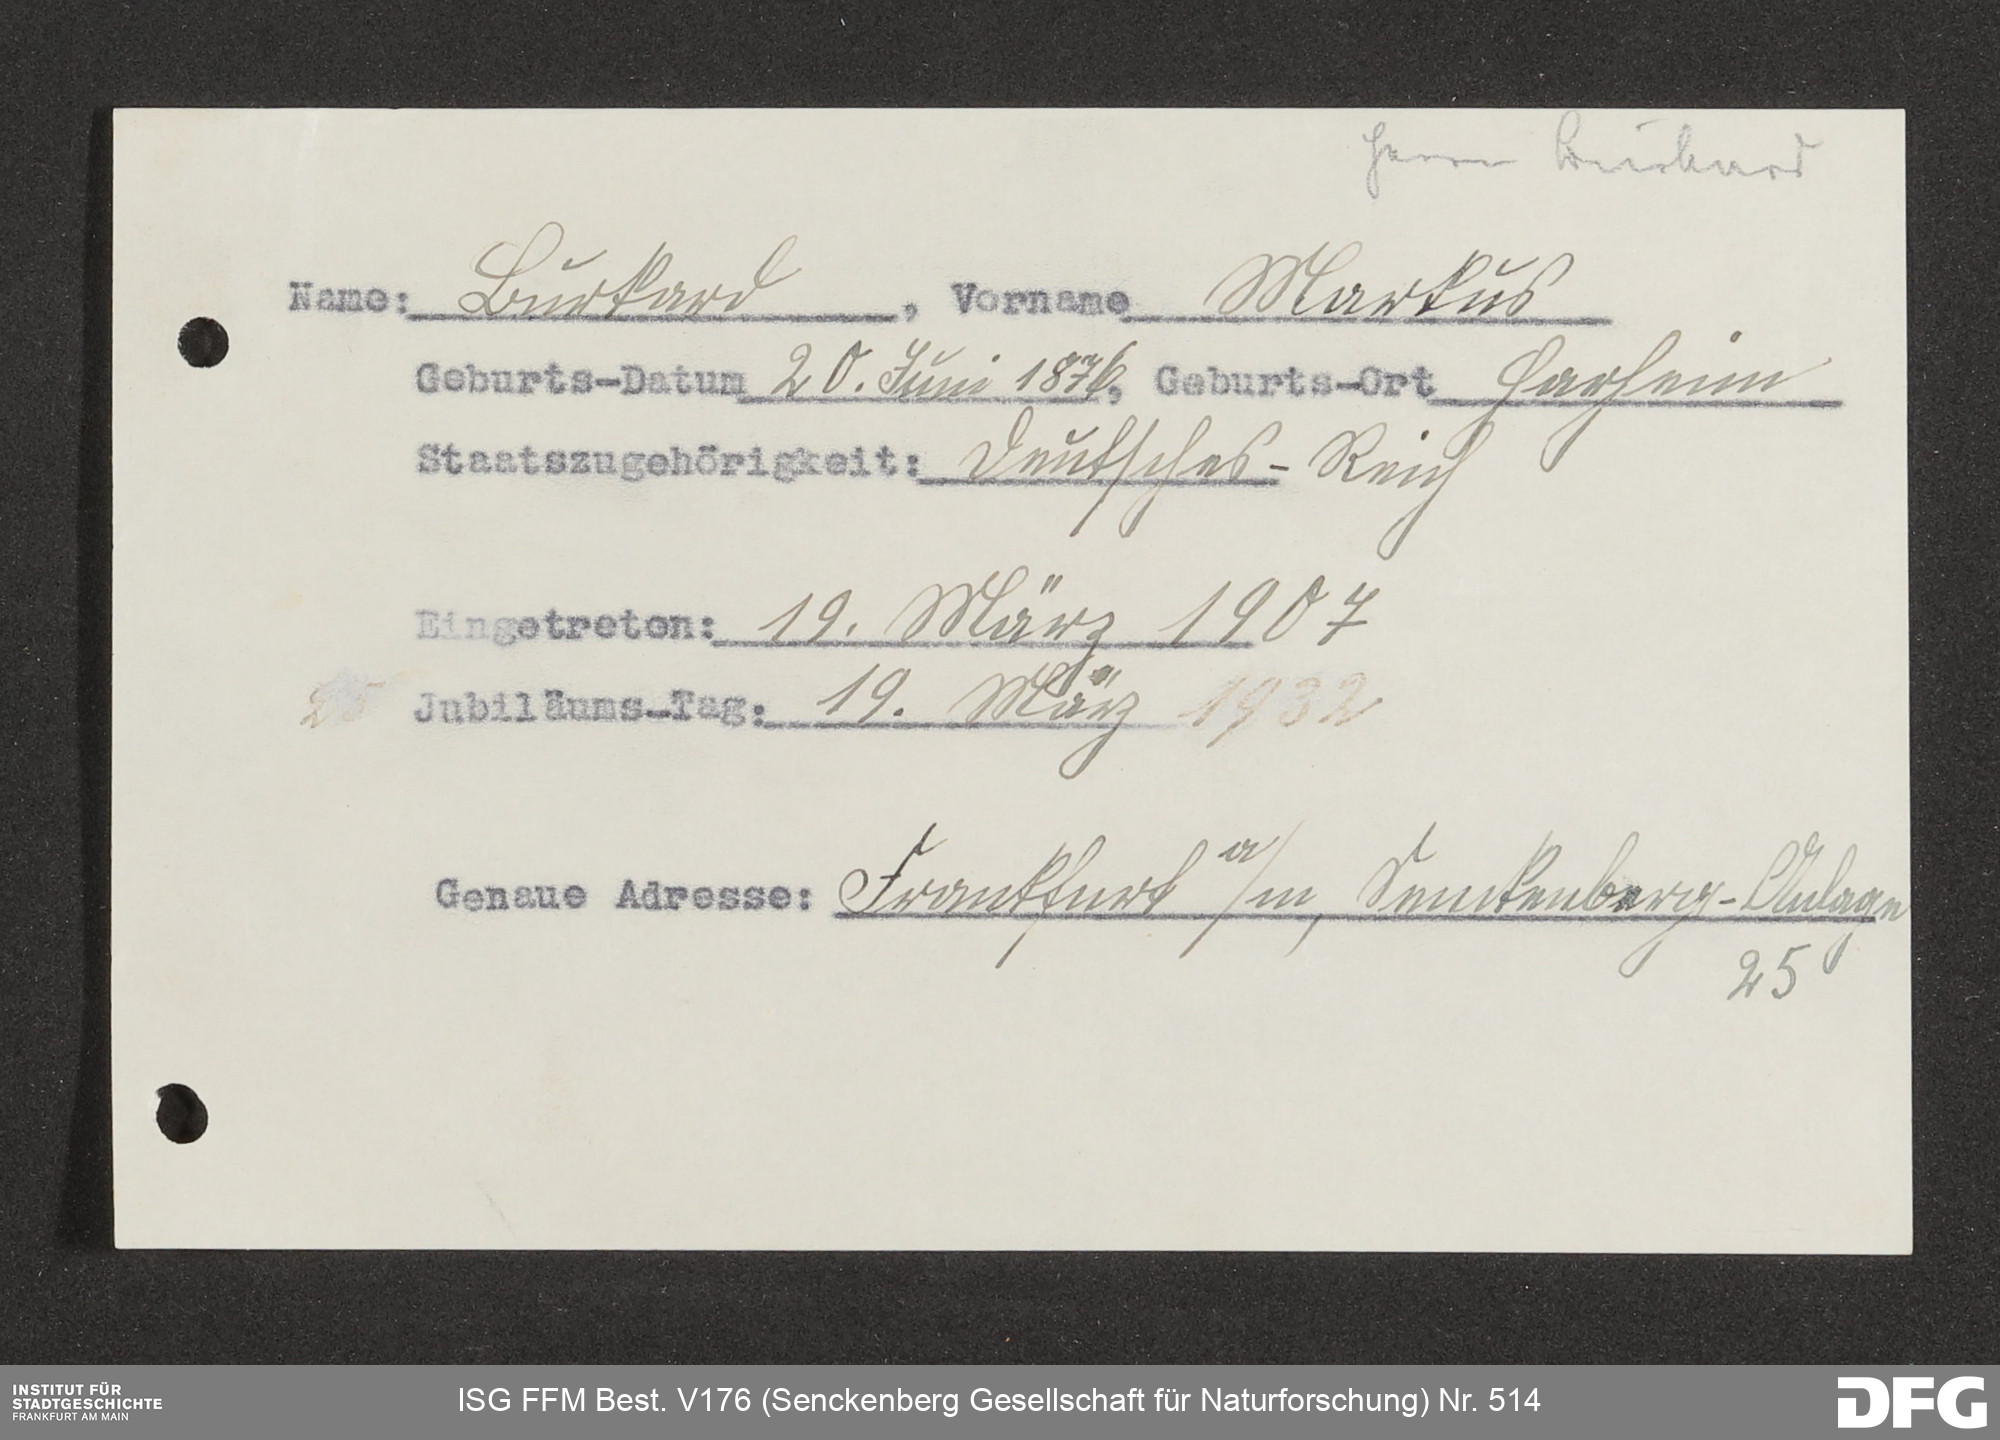 Herrn Burkard
Name: Burkard, Vorname Markus
Geburts-Datum 20. Juni 1876, Geburts-Ort Harheim
Staatszugehörigkeit: Deutsches-Reich
Eingetreten: 19. März 1907
25 Jubiläums-Tag: 19. März 1932
Genaue Adresse: Frankfurt a/m, Senckenberg-Anlage
25
INSTITUT FÜR
STADTGESCHICHTE
FRANKFURT AM MAIN
ISG FFM Best. V176 (Senckenberg Gesellschaft für Naturforschung) Nr. 514
DFG